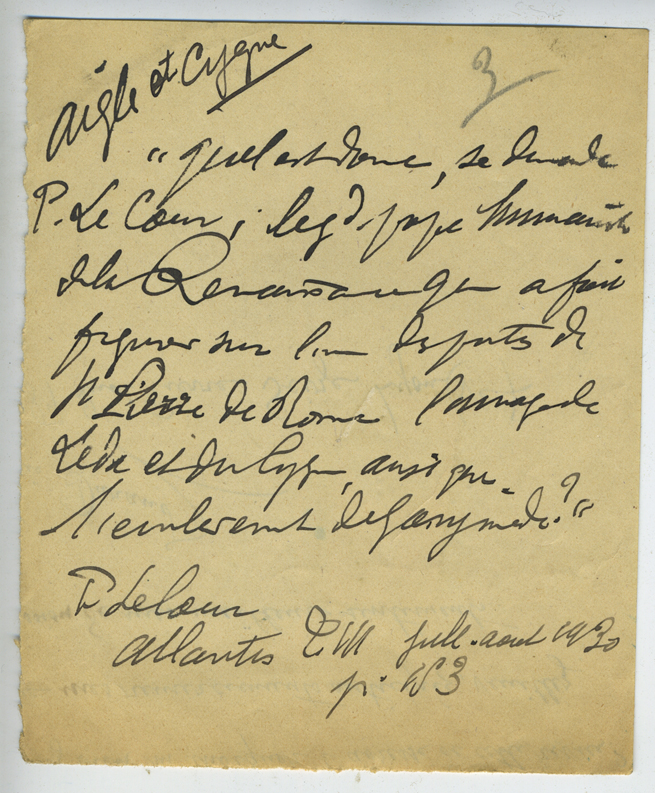 Aigle et Cygne
3
"quel est donc, se demande
P. Le Cour, le gd pape humaniste
de la Renaissance qui a fait
figurer sur l'une des portes de
St Pierre de Rome l'image de
Léda et du Cygne, ainsi que
l'enlèvement de Ganymède?"
P. Le Cour
Atlantis juill.-aout 1930
p. 153